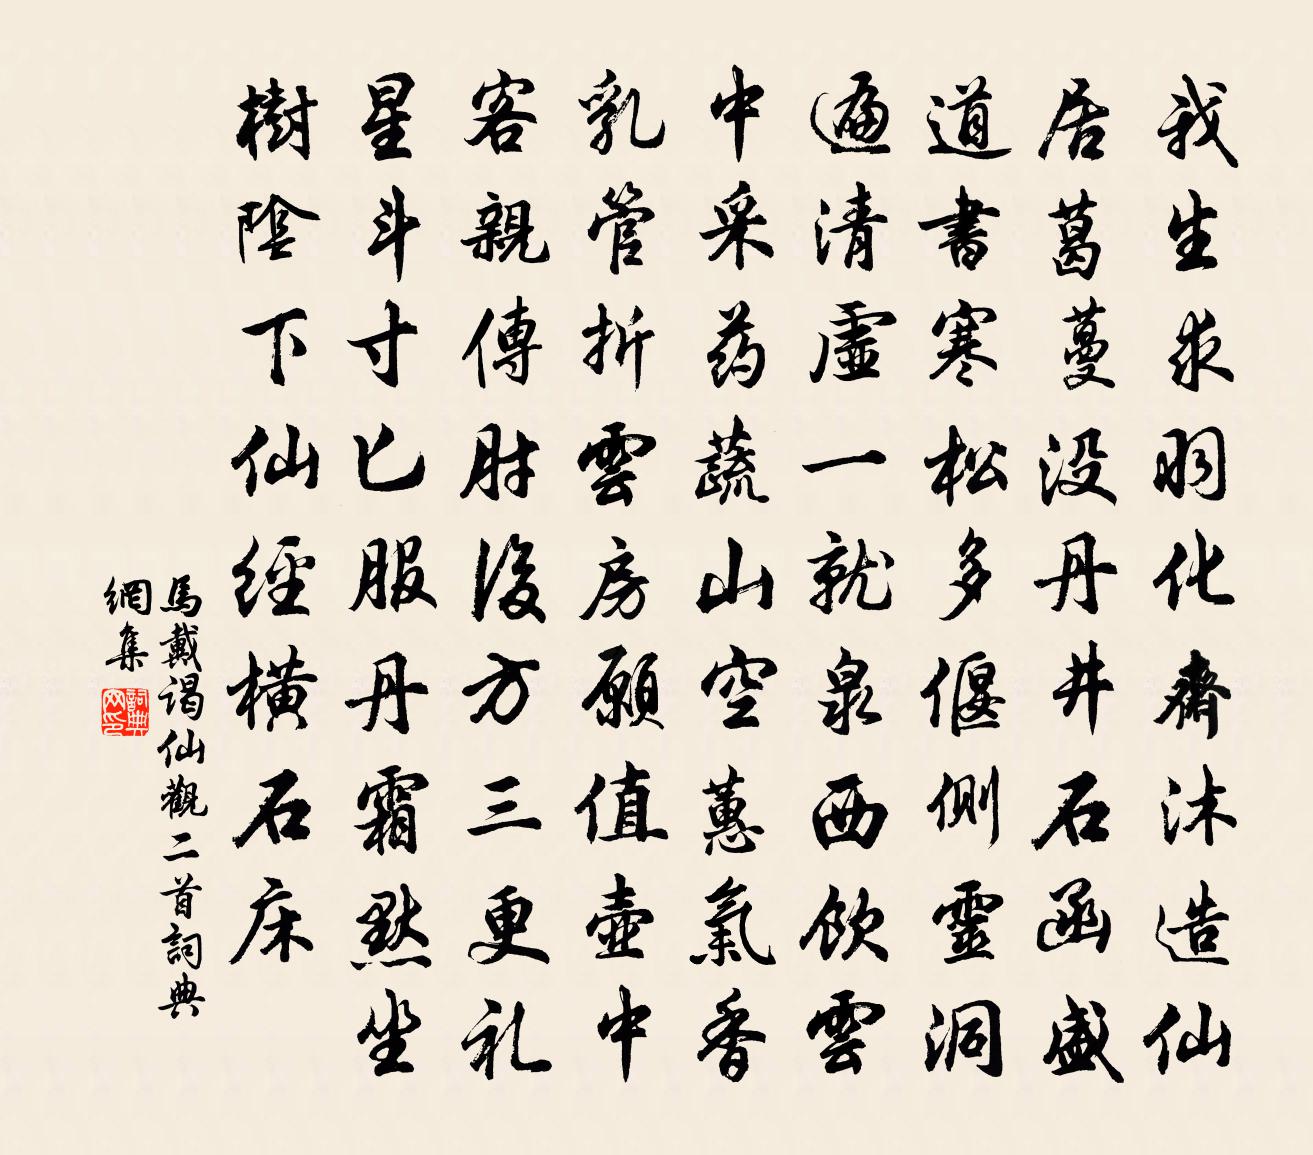 我生求羽化齋沐造仙
居葛蔓没丹井石函盛
道書寒松多偃側靈洞
遍清虛一就泉西飲雲
中采药蔬山空蕙氣香
乳管折雲房願值壺中
客親傳肘後方三更礼
星斗寸匕服丹霜默坐
樹陰下仙經橫石床
馬戴謁仙觀二首詞典
網集
詞典
网印